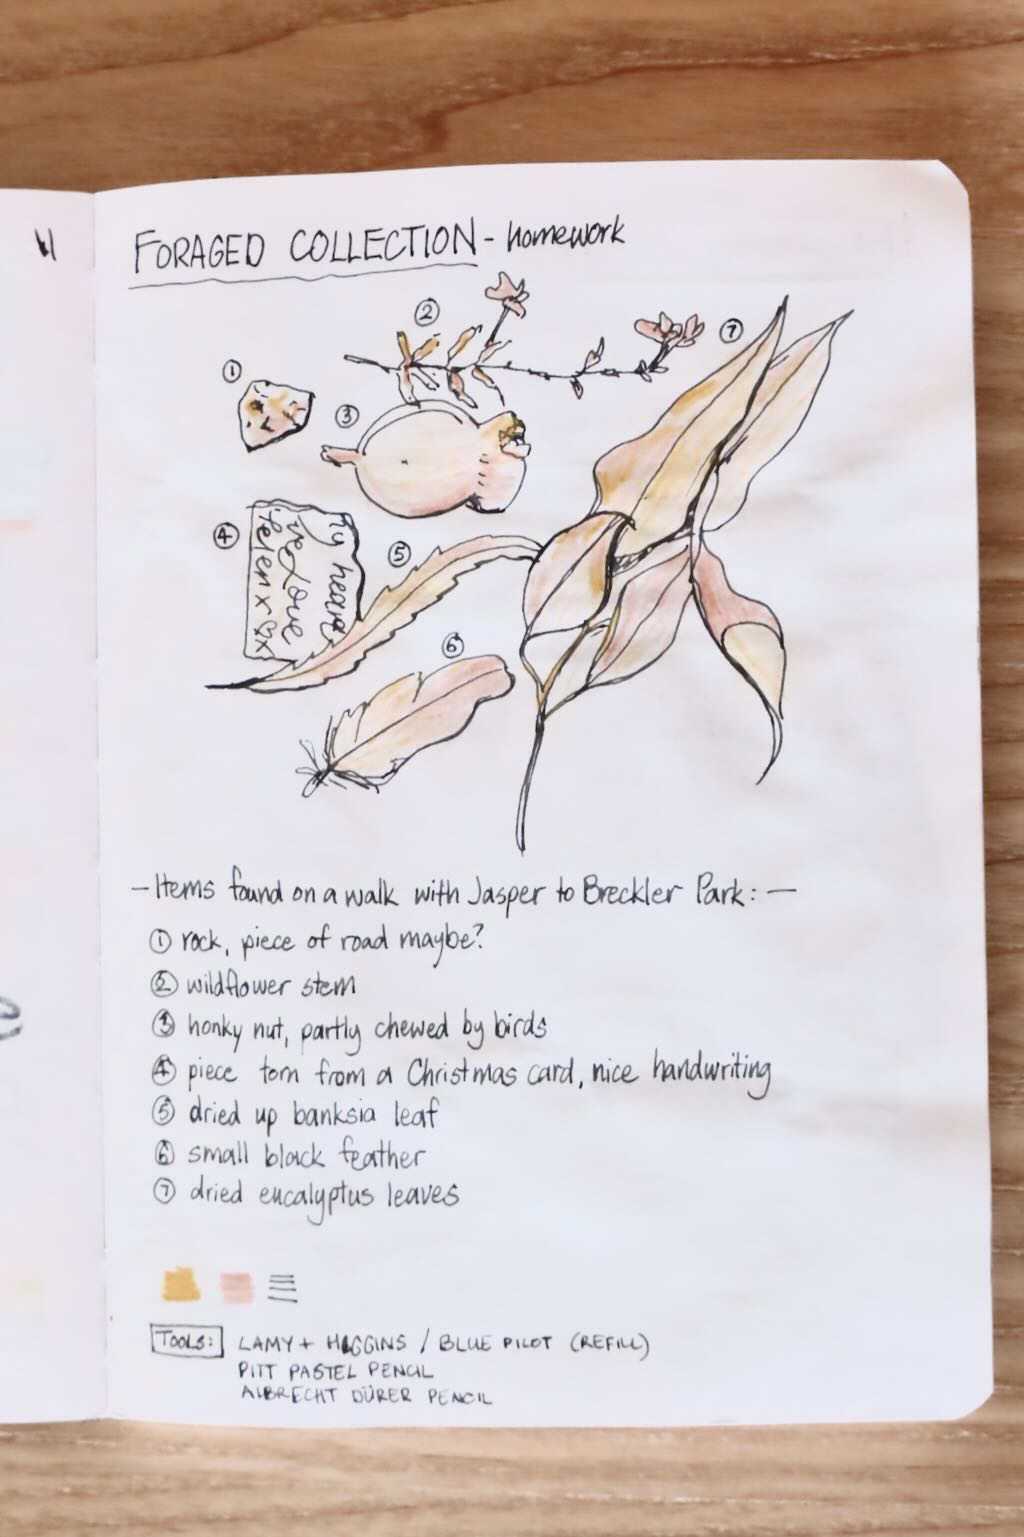 FORAGED COLLECTION - homework
②
⑦
①
③
④
my heart
ive Love
Helen x ♡x
⑤
⑥
- Items found on a walk with Jasper to Breckler Park: -
① rock, piece of road maybe?
② wildflower stem
③ honky nut, partly chewed by birds
④ piece torn from a Christmas card, nice handwriting
⑤ dried up banksia leaf
⑥ small black feather
⑦ dried eucalyptus leaves
TOOLS: LAMY + HIGGINS / BLUE PILOT (REFILL)
PITT PASTEL PENCIL
ALBRECHT DÜRER PENCIL